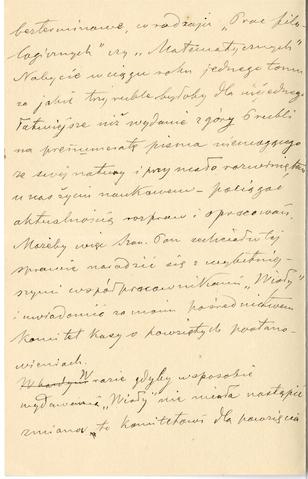 bezterminowe, w rodzaju „Prac filo-
logicznych” czy „Matematycznych”
Nabycie w ciągu roku jednego tomu
za jakie trzy ruble byłoby dla niejednego
łatwiejsze niż wydanie z góry 6 rubli
na prenumeratę pisma niemogącego
ze swej natury i przy mało rozwiniętem
u nas życiu naukowem — pociągać
aktualnością rozpraw i opracowań.
Możeby więc Szan. Pan zechciał w tej
sprawie naradzić się z wybitniej-
szymi współpracownikami „Wisły”
i uwiadomić za moim pośrednictwem
Komitet kasy o powziętych postano-
wieniach.
W razie gdyby w sposobie
wydawania „Wisły” nie miała nastąpić
zmiana, to komitetowi dla powzięcia